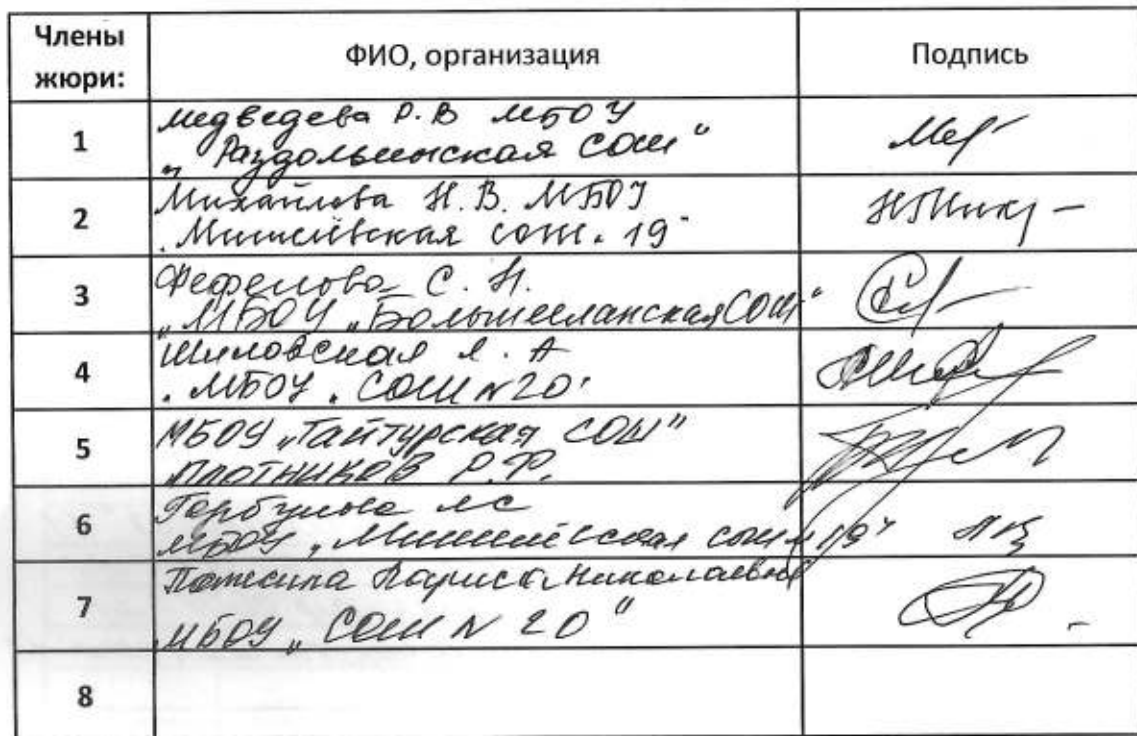 Члены жюри: ФИО, организация Подпись
1 Медведева Р.В МБОУ
„Раздольинская СОШ"
2 Михайлова Н.В. МБОУ
Мишелёвская сош. 19"
3 Фефелова С.Н.
„МБОУ „Большееланская СОШ"
4 Шиловская Л.А
МБОУ „СОШ N 20"
5 МБОУ „Тайтурская СОШ"
Плотников Р.Ф.
6 ЛС
МБОУ „Мишелёвская сош N 19"
7 Лариса Николаевна
МБОУ „СОШ N 20"
8